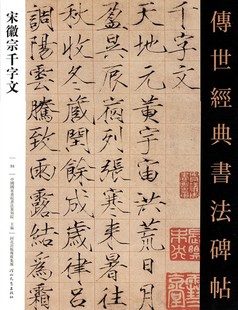 傳世經典書法碑帖
千字文
天地元黃宇宙洪荒日月
盈昃辰宿列張寒來暑往
秋收冬藏閏餘成歲律呂
調陽雲騰致雨露結爲霜
宋徽宗千字文